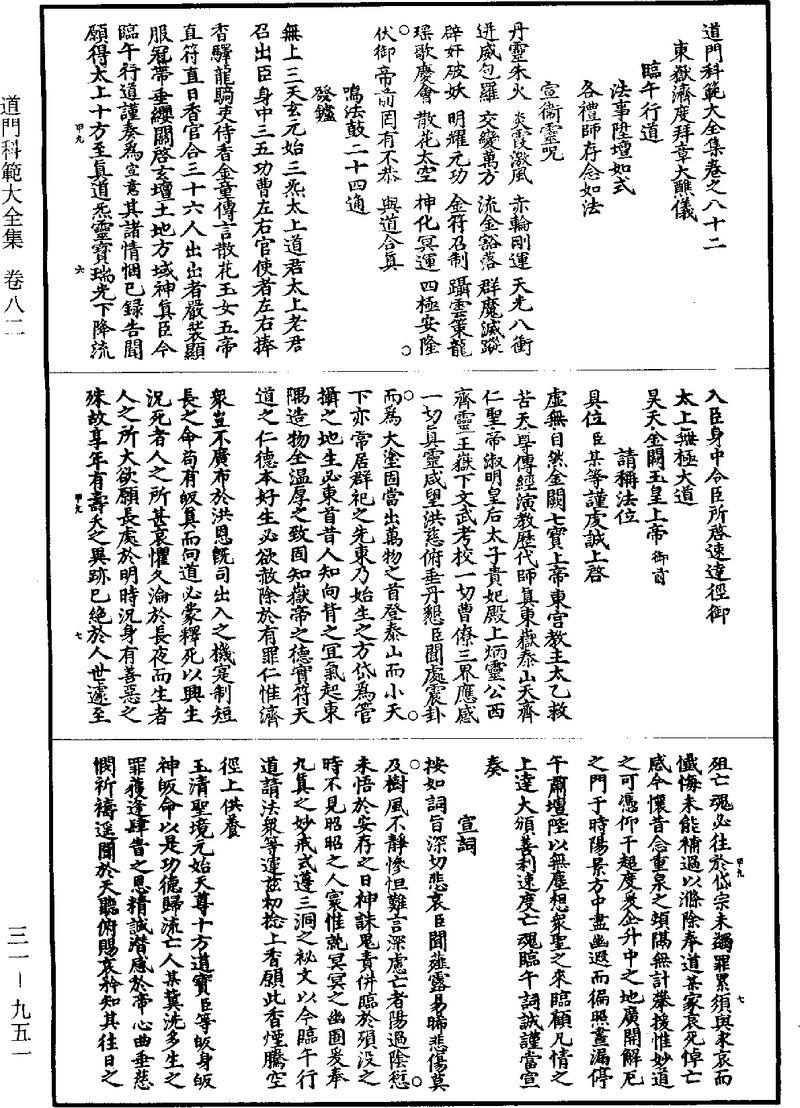 道門科範大全集卷之八十二
東嶽濟度拜章大醮儀
臨午行道
法事陞壇如式
各禮師存念如法
宣衞靈咒
丹靈朱火　炎霞激風　赤輪剛運　天光八衝
迸威包羅　交變萬方　流金豁落　群魔滅蹤
辟奸破妖　明耀元功　金符召制　躡雲策龍
瑶歌慶會　散花太空　神化冥運　四極安隆
伏御帝前　罔有不恭　與道合真
鳴法鼓二十四通
發鑪
無上三天玄元始三炁太上道君太上老君
召出臣身中三五功曹左右官使者左右捧
香驛龍騎吏侍香金童傳言散花玉女五帝
直符直日香官合三十六人出出者嚴裝顯
服冠帶垂纓關啓玄壇土地方域神真臣今
臨午行道謹奏為宣意其諸情悃已錄告聞
願得太上十方至真道炁靈寶瑞光下降流
甲九　六
入臣身中令臣所啓速達徑御
太上無極大道
昊天金闕玉皇上帝御前
請稱法位
具位臣某等謹虔誠上啓
虛無自然金闕七寶上帝東宫教主太乙救
苦天尊傳經演教歷代師真東嶽泰山天齊
仁聖帝淑明皇后太子貴妃殿上炳靈公西
齊靈王嶽下文武考校一切曹僚三界應感
一切真靈咸望洪慈俯垂丹懇臣聞處震卦
而為大塗固當出萬物之首登泰山而小天
下亦常居群祀之先東乃始生之方岱為管
攝之地生必東首昔人知向背之宜氣起東
隅造物全温厚之致固知嶽帝之德實符天
道之仁德本好生必欲赦除於有罪仁惟濟
衆豈不廣布於洪恩既司出入之機寔制短
長之命苟有皈真而向道必蒙釋死以興生
況死者人之所甚哀懼久淪於長夜而生者
人之所大欲願長處於明時況身有善惡之
殊故享年有壽夭之異跡已絶於人世遽至
甲九　七
殂亡魂必往於岱宗未蠲罪累須與求哀而
懺悔未能補過以滌除奉道某家哀死悼亡
感今懷昔念重泉之頌隔無計攀援惟妙道
之可憑仰干超度爰企升中之地廣開解厄
之門于時陽景方中盡幽遐而徧照晝漏停
午肅壇陛以無塵想衆聖之來臨顧凡情之
上達大頒善利速度亡魂臨午詞誠謹當宣
奏
宣詞
按如詞旨深切悲哀臣聞薤露易晞悲傷莫
及樹風不靜慘怛難言深慮亡者陽過陰愆
未悟於安存之日神誅鬼責併臨於殞没之
時不見昭昭之人寰惟就冥冥之幽圄爰奉
九真之妙戒式遵三洞之祕文以今臨午行
道請法衆等運茲初捻上香願此香煙騰空
徑上供養
玉清聖境元始天尊十方道寶臣等皈身皈
神皈命以是功德歸流亡人某冀洗多生之
罪獲逢肆眚之恩精誠潛感於帝心曲垂慈
憫祈禱遥聞於天聽俯賜哀矜知其往日之
甲九　七
道門科範大全集　卷八二
三一－九五一